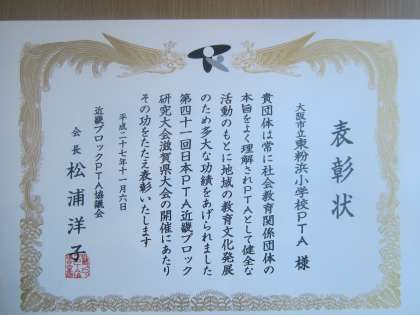 表彰状
大阪市立東粉浜小学校PTA 様
貴団体は常に社会教育関係団体の
本旨をよく理解されPTAとして健全な
活動のもとに地域の教育文化発展
のため多大な功績をあげられました
第四十一回日本PTA近畿ブロック
研究大会滋賀県大会の開催にあたり
その功をたたえ表彰いたします
平成二十七年十一月六日
近畿ブロックPTA協議会
会長 松浦洋子